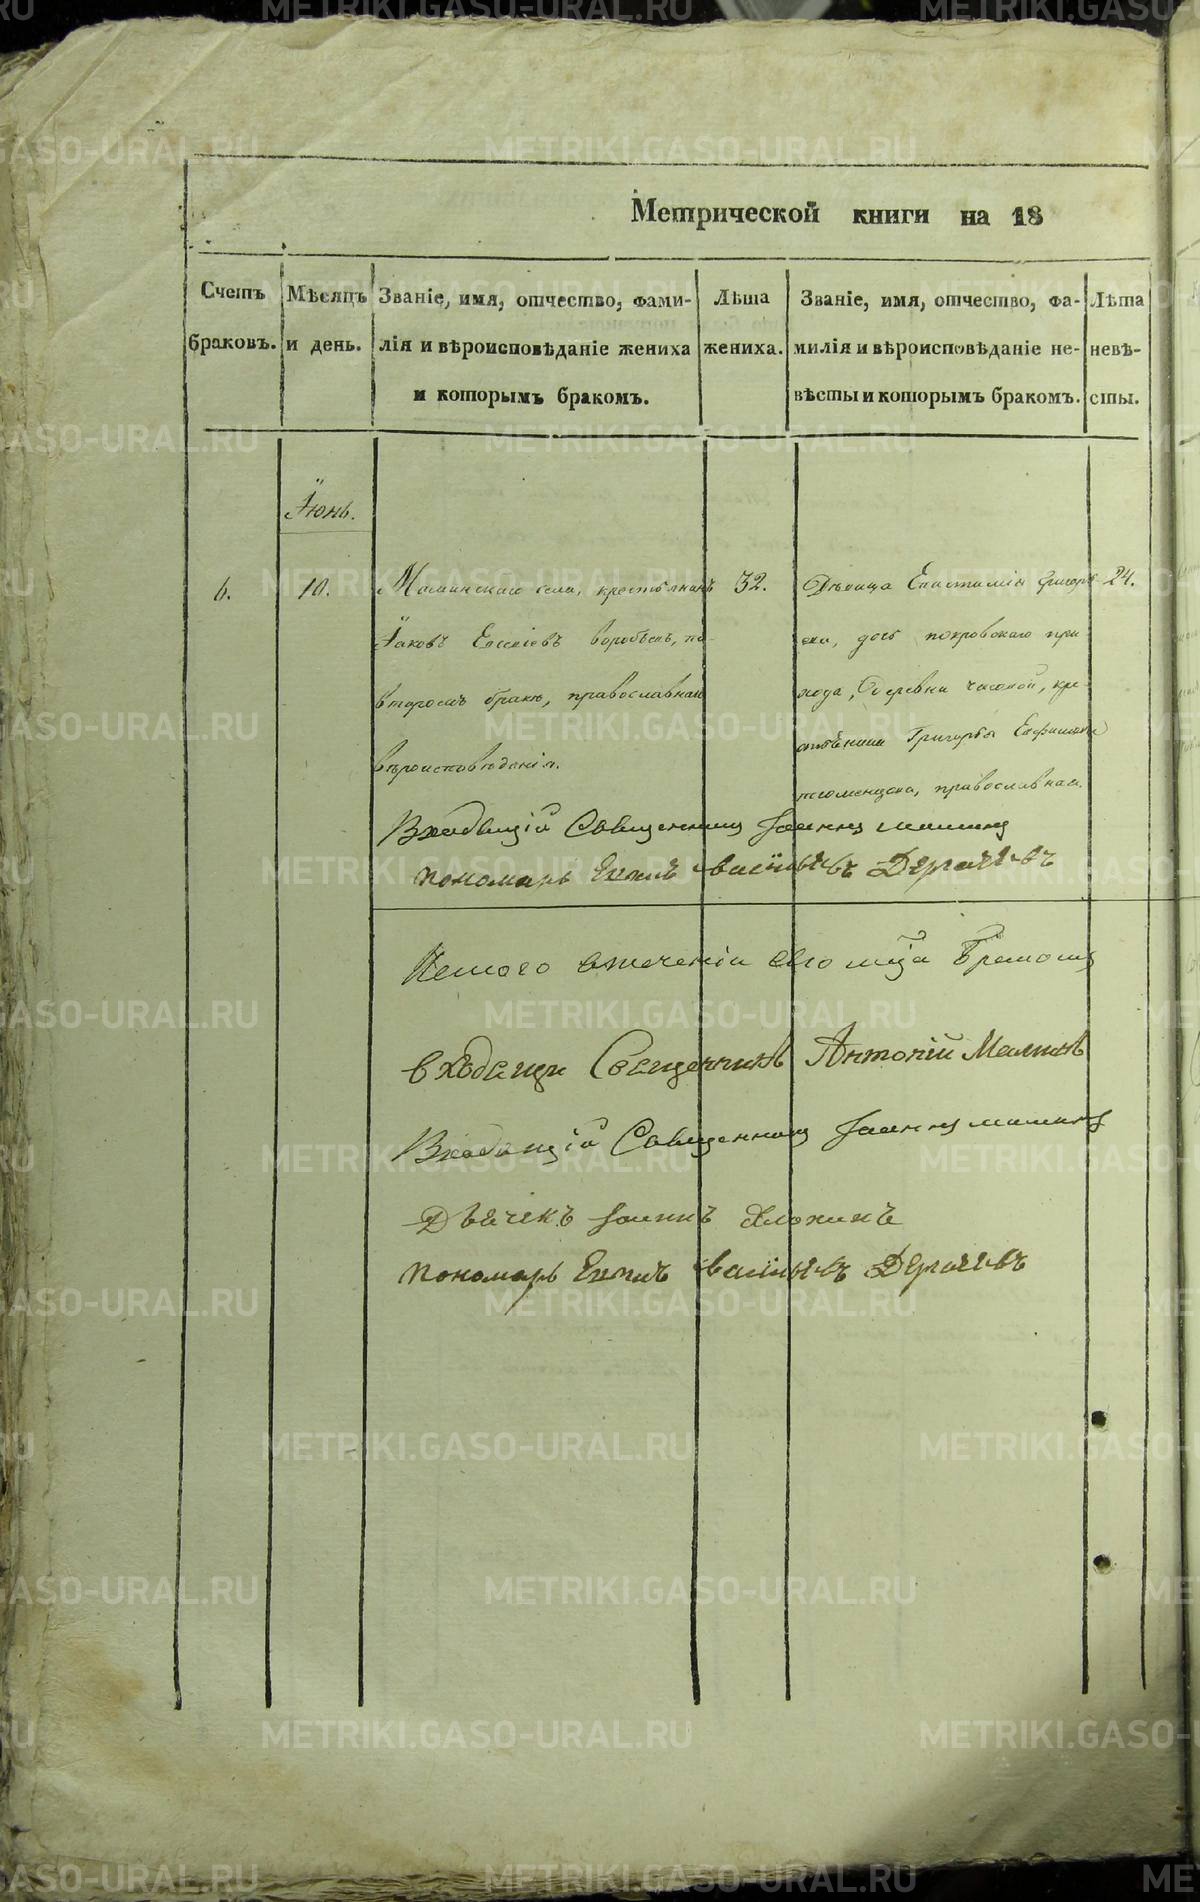 Метрической книги на 18
Счетъ браковъ.
Мѣсяцъ и день.
Званіе, имя, отчество, фами-
лія и вѣроисповѣданіе жениха
и которымъ бракомъ.
Лѣта
жениха.
Званіе, имя, отчество, фа-
милія и вѣроисповѣданіе не-
вѣсты и которымъ бракомъ.
Лѣта
невѣ-
сты.
Іюнь.
6.
10.
Маминскаго села, крестьянинъ
Іаковъ Евсеіевъ Воробьевъ, по-
второмъ бракѣ, православнаго
вѣроисповѣданія.
32.
Дѣвица Епистимія Григорь-
ева, дочь покровскаго при
хода, деревни часовой, кре
стьянина Григорья Евфимова
тюменцова, православнаго
24.
Входящій Священникъ Іоаннъ маминъ
пономарь васильевъ Дергачевъ
втеченіи сего мца
Священникъ Антоній Маминъ
Входящій Священникъ Іоаннъ маминъ
Дьячекъ Іоаннъ
пономарь васильевъ Дергачевъ
METRIKI.GASO-URAL.RU